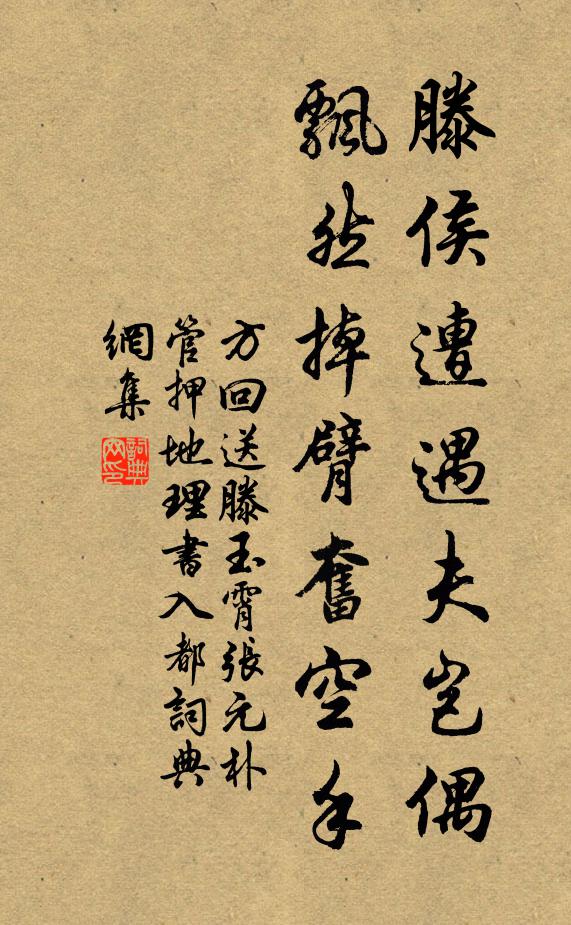 滕侯遭遇夫岂偶
飄然掉臂奮空手
方回送滕玉霄張元朴
管押地理書入都詞典
網集
詞典網印